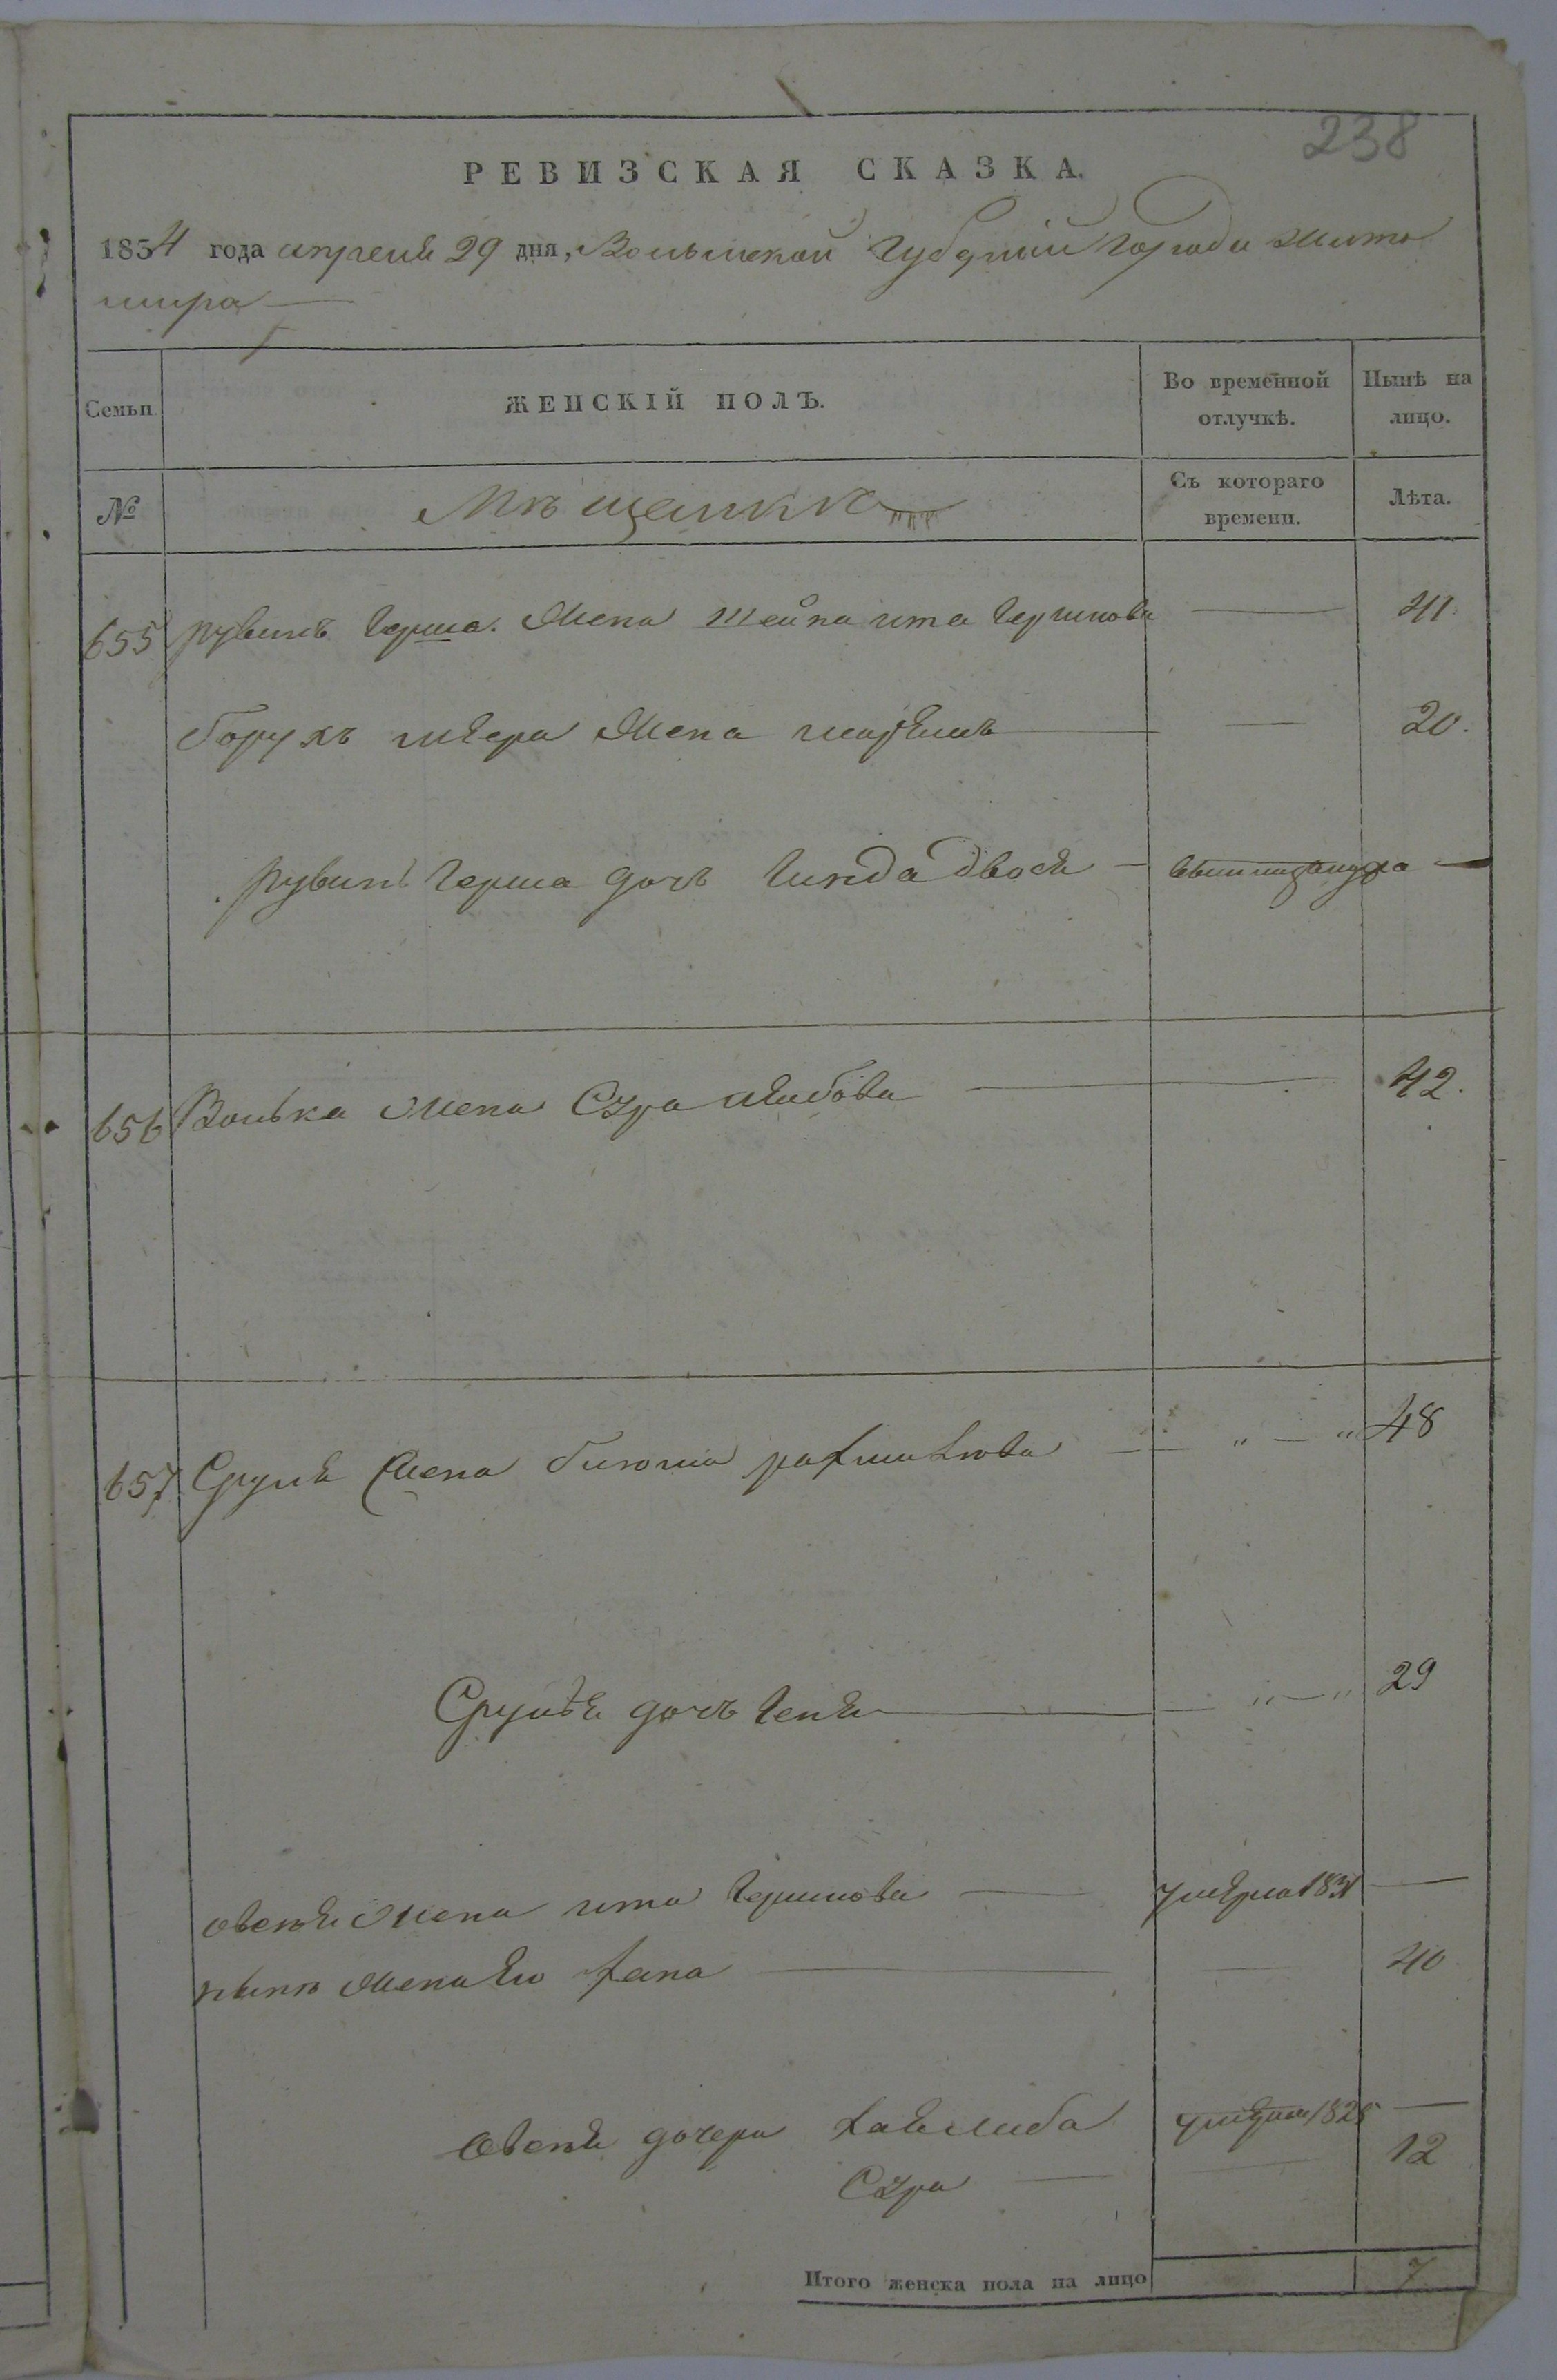 238
РЕВИЗСКАЯ СКАЗКА.
1834 года апреля 29 дня, Волынской Губерніи Города Жито
мира —
Семьи ЖЕНСКІЙ ПОЛЪ. Во временной отлучкѣ. Нынѣ на лицо.
№ Мѣщанки Съ котораго времени. Лѣта.
655 Рувинъ Герша. Жена Шейна ита Гершкова — 41
Борухъ Жена — 20.
Рувинъ Герша дочь Гинда Двося — —
656 Волька Жена Сура — 42.
657 Сруля Жена — " — " 48
Сруля дочь Геня — " — " 29
Овсея Жена ита Гершкова — умерла 1831 —
нынѣ Жена Его Хана — — 40
Овсея дочери Хая Либа умерла 1825 —
Сура — — 12
Итого женска пола на лицо 7